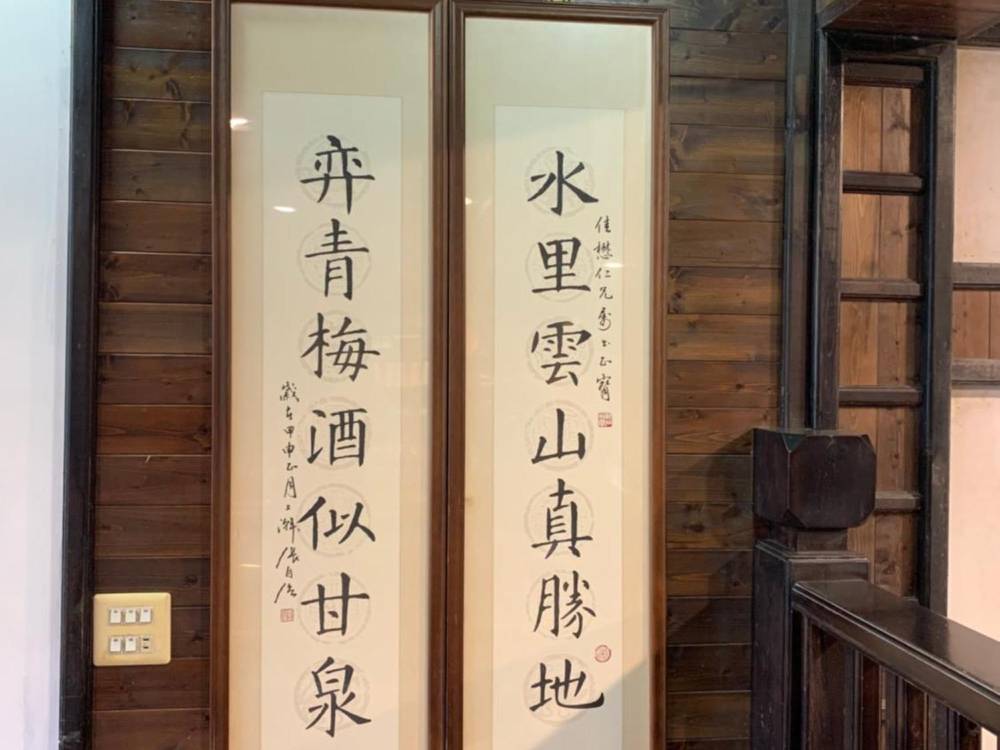 水里雲山真勝地
佳懋仁兄 正
弈青梅酒似甘泉
歲在甲申正月上澣